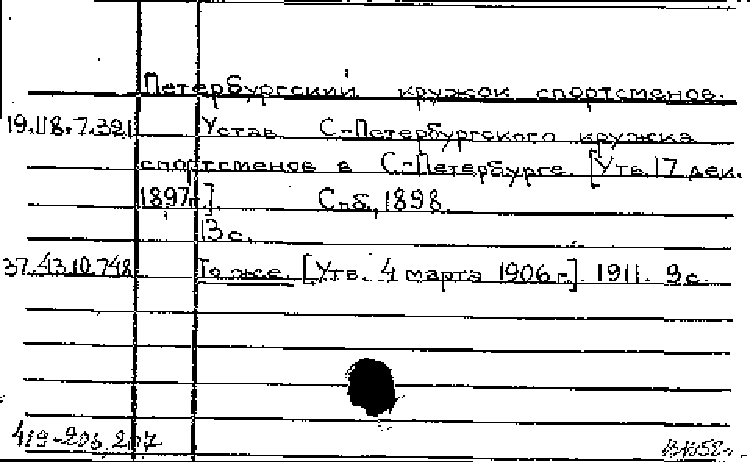 Петербургский кружок спортсменов.
19.118.7.321 Устав С-Петербургского кружка
спортсменов в С-Петербурге. [Утв. 17 дек.
1897г.]. Спб., 1898.
13 с.
37.43.10.748 То же. [Утв. 4 марта 1906 г.] 1911. 9 с.
419-206, 207